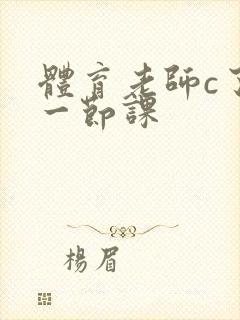 體育老師c了
一節課
楊眉